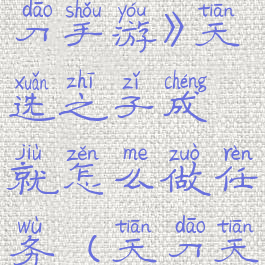 dāo shǒu yóu tiān
刀手游》天
xuǎn zhī zǐ chéng
选之子成
jiù zěn me zuò rèn
就怎么做任
wù tiān dāo tiān
务(天刀天